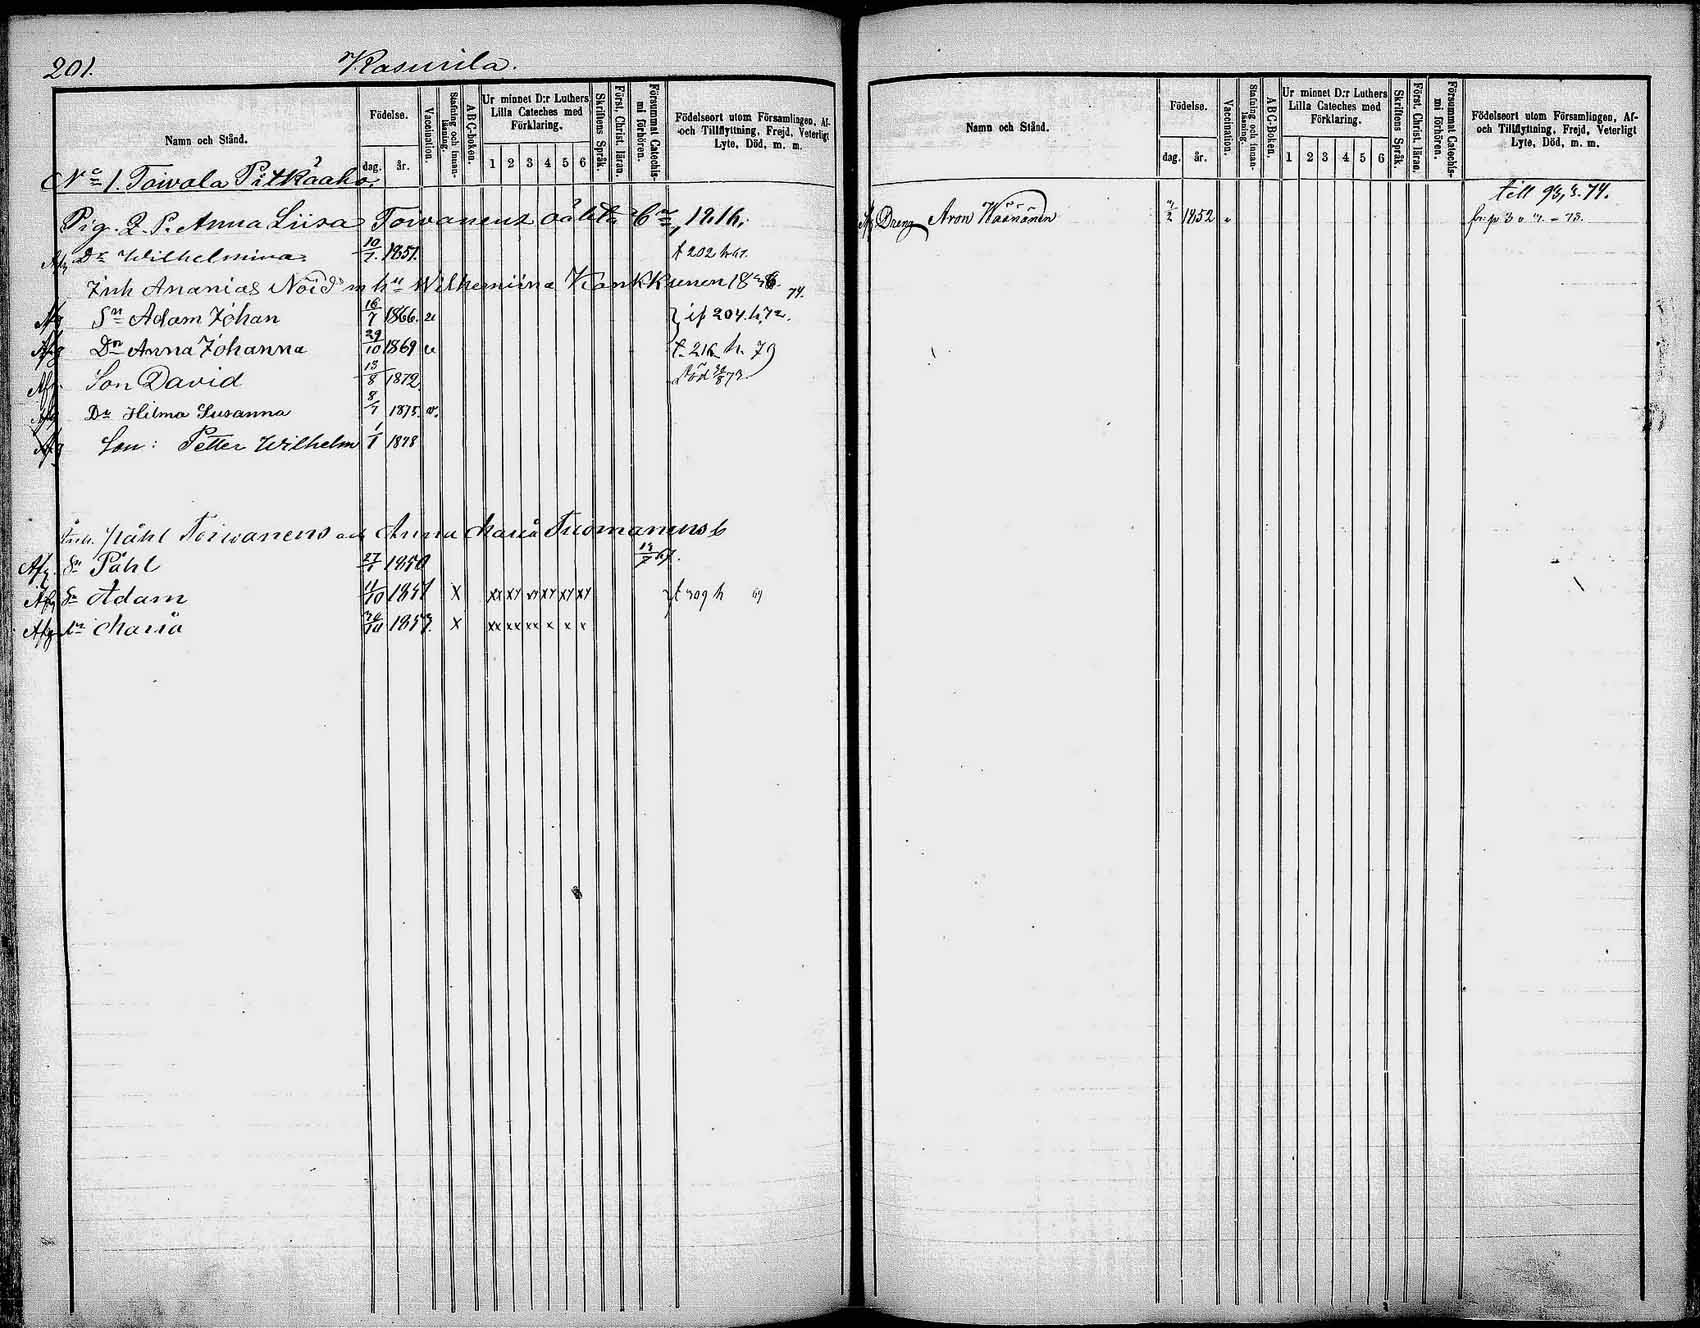 201.
Kasurila.
Namn och Stånd.
Födelse.
dag.
år.
Vaccination.
Stafning och innanläsning.
ABC-boken.
Ur minnet D:r Luthers Lilla Cateches med Förklaring.
1 2 3 4 5 6
Skriftens Språk.
Först. Christ. läran.
Försummat Catechismi förhören.
Födelseort utom Församlingen, Af- och Tillflyttning, Frejd, Veterligt Lyte, Död, m. m.
No 1. Toivola Pitkäaho.
Pig. Anna Liisa Toivanens oäkta
Afg Dr Wilhelmina 10/7 1851. t 202 h
Inh Ananias Wilhemiina Kankkunen
Afg Sn Adam Johan 16/7 1866. u if 204. h. 72.
Afg Dr Anna Johanna 29/10 1869 u t. 216 h. 79
Afg. Son David 13/8 1872 död
Afg Dr Hilma Susanna 8/7 1875. v.
Afg Son: Petter Wilhelm 1/1 1878
Inh. Påhl Toivanens och Anna Maria Tuomanens b
Afg. Sn Påhl 27/1 1850
Afg Sn Adam 11/10 1851 x xx xy xy xy xy xy t 309 h 69
Afg Dr Maria 1853. x xx xx xx x x x
Namn och Stånd.
Födelse.
dag.
år.
Vaccination.
Stafning och innanläsning.
ABC-Boken.
Ur minnet D:r Luthers Lilla Cateches med Förklaring.
1 2 3 4 5 6
Skriftens Språk.
Först. Christ. läran.
Försummat Catechismi förhören.
Födelseort utom Församlingen, Af- och Tillflyttning, Frejd, Veterligt Lyte, Död, m. m.
till 93, s. 74.
Afg Dreng Aron Väänänen 1852